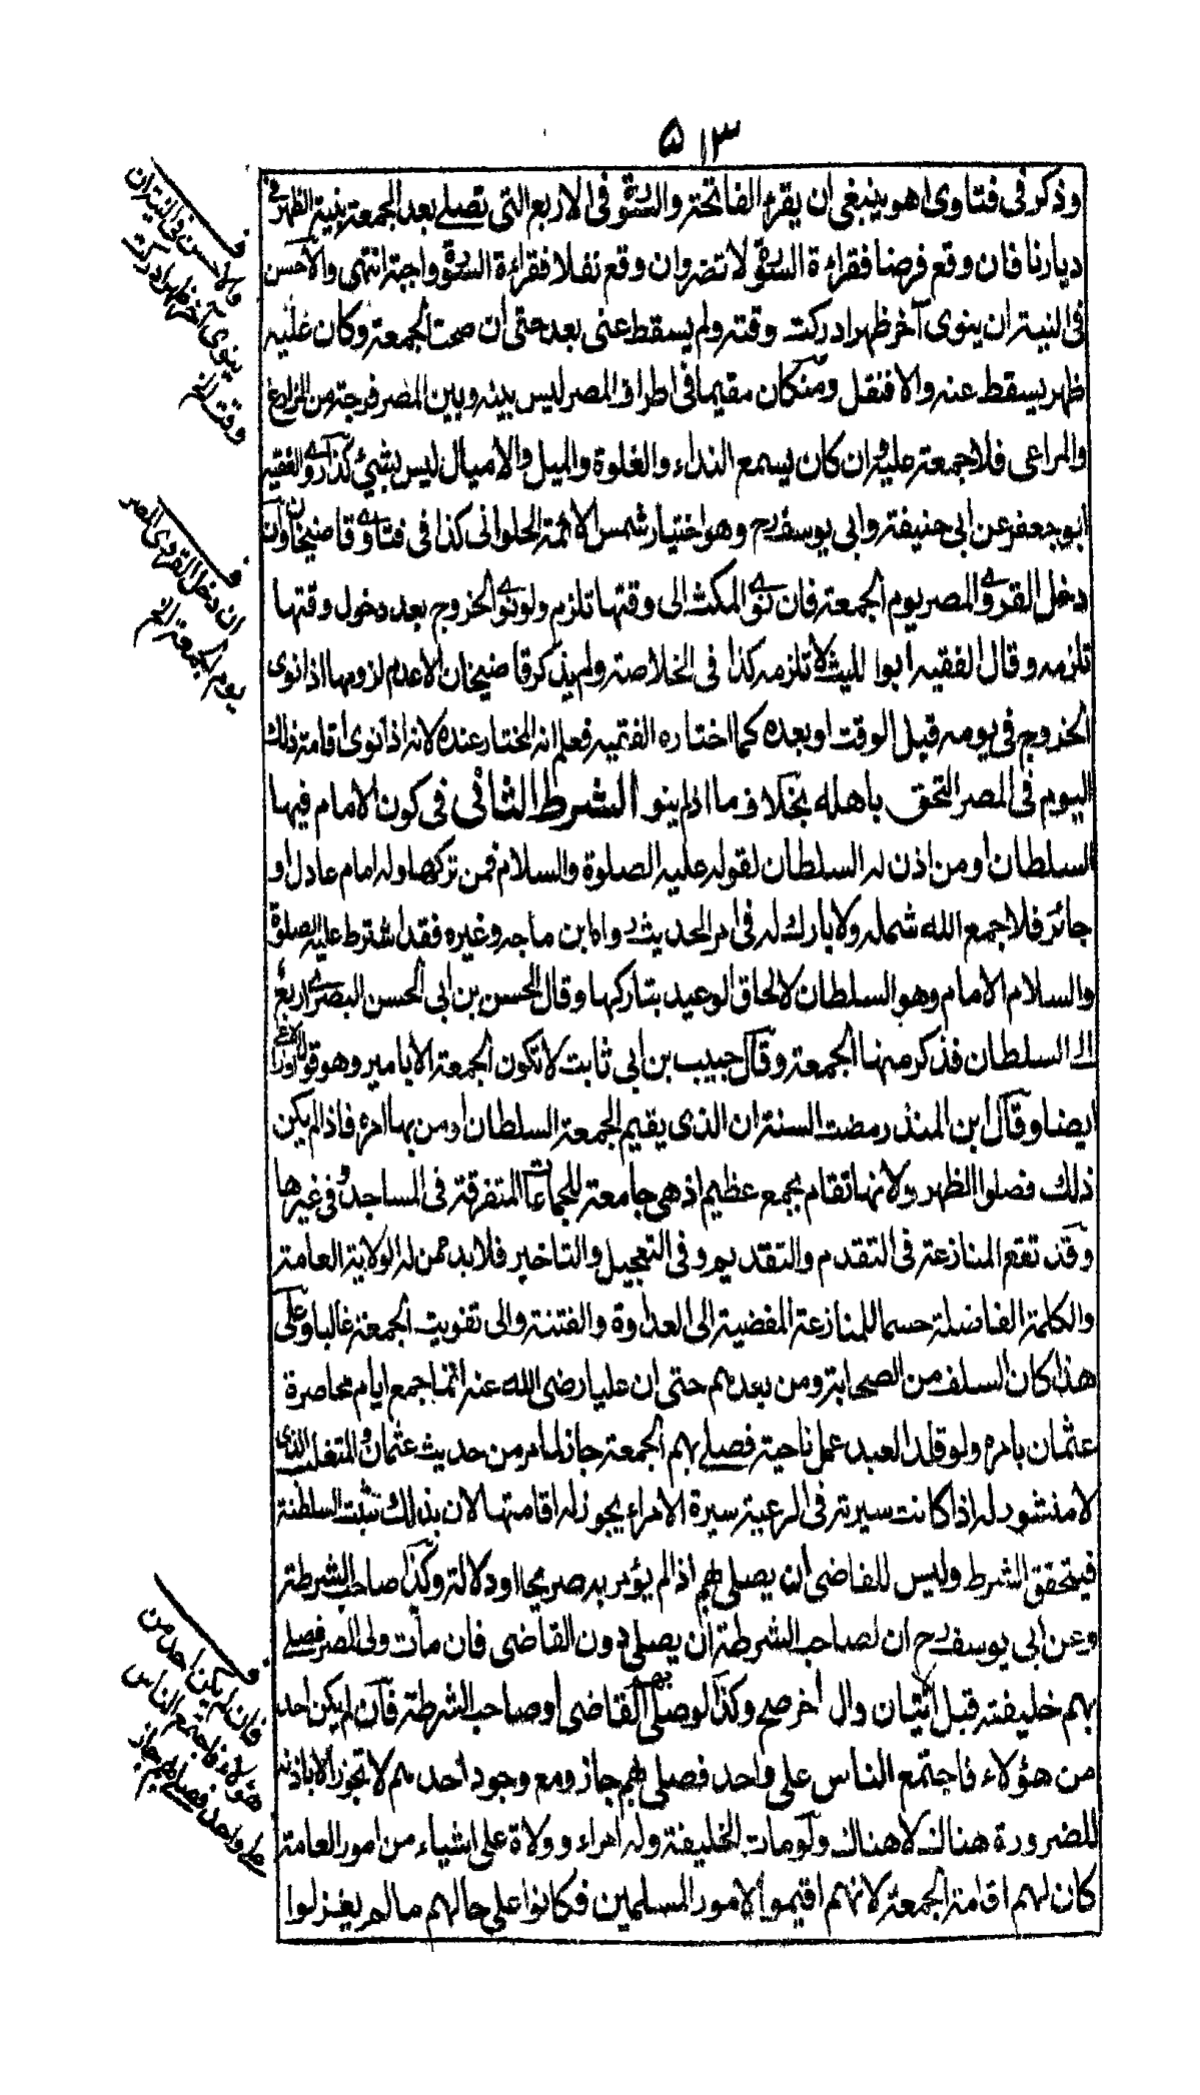 ٥١٣
وذكر فى فتاوى اهو ينبغى ان يقرء الفاتحة والسورة فى الاربع التى تصلى بعد الجمعة بنية الظهر فى
ديارنا فان وقع فرضا فقراءة السورة لا تضر وان وقع نفلا فقراءة السورة واجبة انتهى والاحسن
فى النية ان ينوى آخر ظهر ادركت وقته ولم يسقط عنى بعد حتى ان صحت الجمعة وكان عليه
ظهر يسقط عنه والا فنفل ومن كان مقيما فى اطراف المصر ليس بينه وبين المصر فرجة من المزارع
والمراعى فلا جمعة عليه وان كان يسمع النداء والغلوة والميل والاميال ليس بشىء كذا روى الفقيه
ابو جعفر عن ابى حنيفة وابى يوسف رح وهو اختيار شمس الائمة الحلوانى كذا فى فتاوى قاضيخان وان
دخل القروى المصر يوم الجمعة فان نوى المكث الى وقتها تلزمه ولو نوى الخروج بعد دخول وقتها
تلزمه وقال الفقيه ابوا لليث لا تلزمه كذا فى الخلاصة ولم يذكر قاضيخان الا عدم لزومها اذا نوى
الخروج فى يومه قبل الوقت او بعده كما اختاره الفقيه فعلم انه المختار عنده لانه اذا نوى اقامة ذلك
اليوم فى المصر التحق باهله بخلاف ما اذا لم ينو الشرط الثانى فى كون الامام فيها
السلطان او من اذن له السلطان لقوله عليه الصلوة والسلام فمن تركها وله امام عادل او
جائر فلا جمع الله شمله ولا بارك له فى امره الحديث رواه ابن ماجه وغيره فقد اشترط عليه الصلوة
والسلام الامام وهو السلطان لالحاق الوعيد بتاركها وقال الحسن بن ابى الحسن البصرى اربع
الى السلطان فذكر منها الجمعة وقال حبيب بن ابى ثابت لا تكون الجمعة الا بامير وهو قول الاوزاعى
ايضا وقال ابن المنذر مضت السنة ان الذى يقيم الجمعة السلطان او من بها امره فاذا لم يكن
ذلك فصلوا الظهر ولانها تقام بجمع عظيم اذ هى جامعة للجماعات المتفرقة فى المساجد وفى غيرها
وقد تقع المنازعة فى التقدم والتقديم وفى التعجيل والتاخير فلا بد ممن له الولاية العامة
والكلمة الفاضلة حسما للمنازعة المفضية الى العداوة والفتنة والى تفويت الجمعة غالبا وعلى
هذا كان السلف من الصحابة ومن بعدهم حتى ان عليا رضى الله عنه انما جمع ايام محاصرة
عثمان بامره ولو قلد العبد عمل ناحية فصلى بهم الجمعة جاز لما مر من حديث عثمان والمتغلب الذى
لا منشور له اذا كانت سيرته فى الرعية سيرة الامراء يجوز له اقامتها لان بذلك تثبت السلطنة
فيتحقق الشرط وليس للقاضى ان يصلى بهم اذا لم يؤمر به صريحا او دلالة وكذا صاحب الشرطة
وعن ابى يوسف رح ان لصاحب الشرطة ان يصلى دون القاضى فان مات والى المصر فصلى
بهم خليفته قبل اتيان وال آخر صح وكذا لو صلى بهم القاضى او صاحب الشرطة فان لم يكن احد
من هؤلاء فاجتمع الناس على واحد فصلى بهم جاز ومع وجود احدهم لا تجوز الا باذنه
للضرورة هناك لا هناك ولو مات الخليفة وله امراء وولاة على اشياء من امور العامة
كان لهم اقامة الجمعة لانهم اقيموا لامور المسلمين فكانوا على حالهم ما لم يعزلوا
ف
والاحسن فى النية ان
ينوى آخر ظهر ادركت
وقته الخ
ف
ان دخل القروى المصر
يوم الجمعة الخ
ف
فان لم يكن احد من
هؤلاء فاجتمع الناس
على واحد فصلى بهم جاز